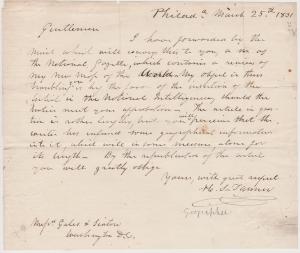 Philada. March 25th 1831
Gentlemen
I have forwarded by the
mail which will convey this to you, a no. of
the National Gazette, which contains a review of
my new Map of the World. My object in thus
troubling you is to beg the favor of the insertion of the
article in the National Intelligencer, should the
notice meet your approbation. The article in ques-
tion is rather lengthy, but you will perceive that the
writer has infused some geographical information
into it, which will in some measure, atone for
its length. By the republication of the article
you will greatly oblige
Yours, with great respect
H. S. Tanner
Geographer
Messrs. Gales & Seaton
Washington D.C.